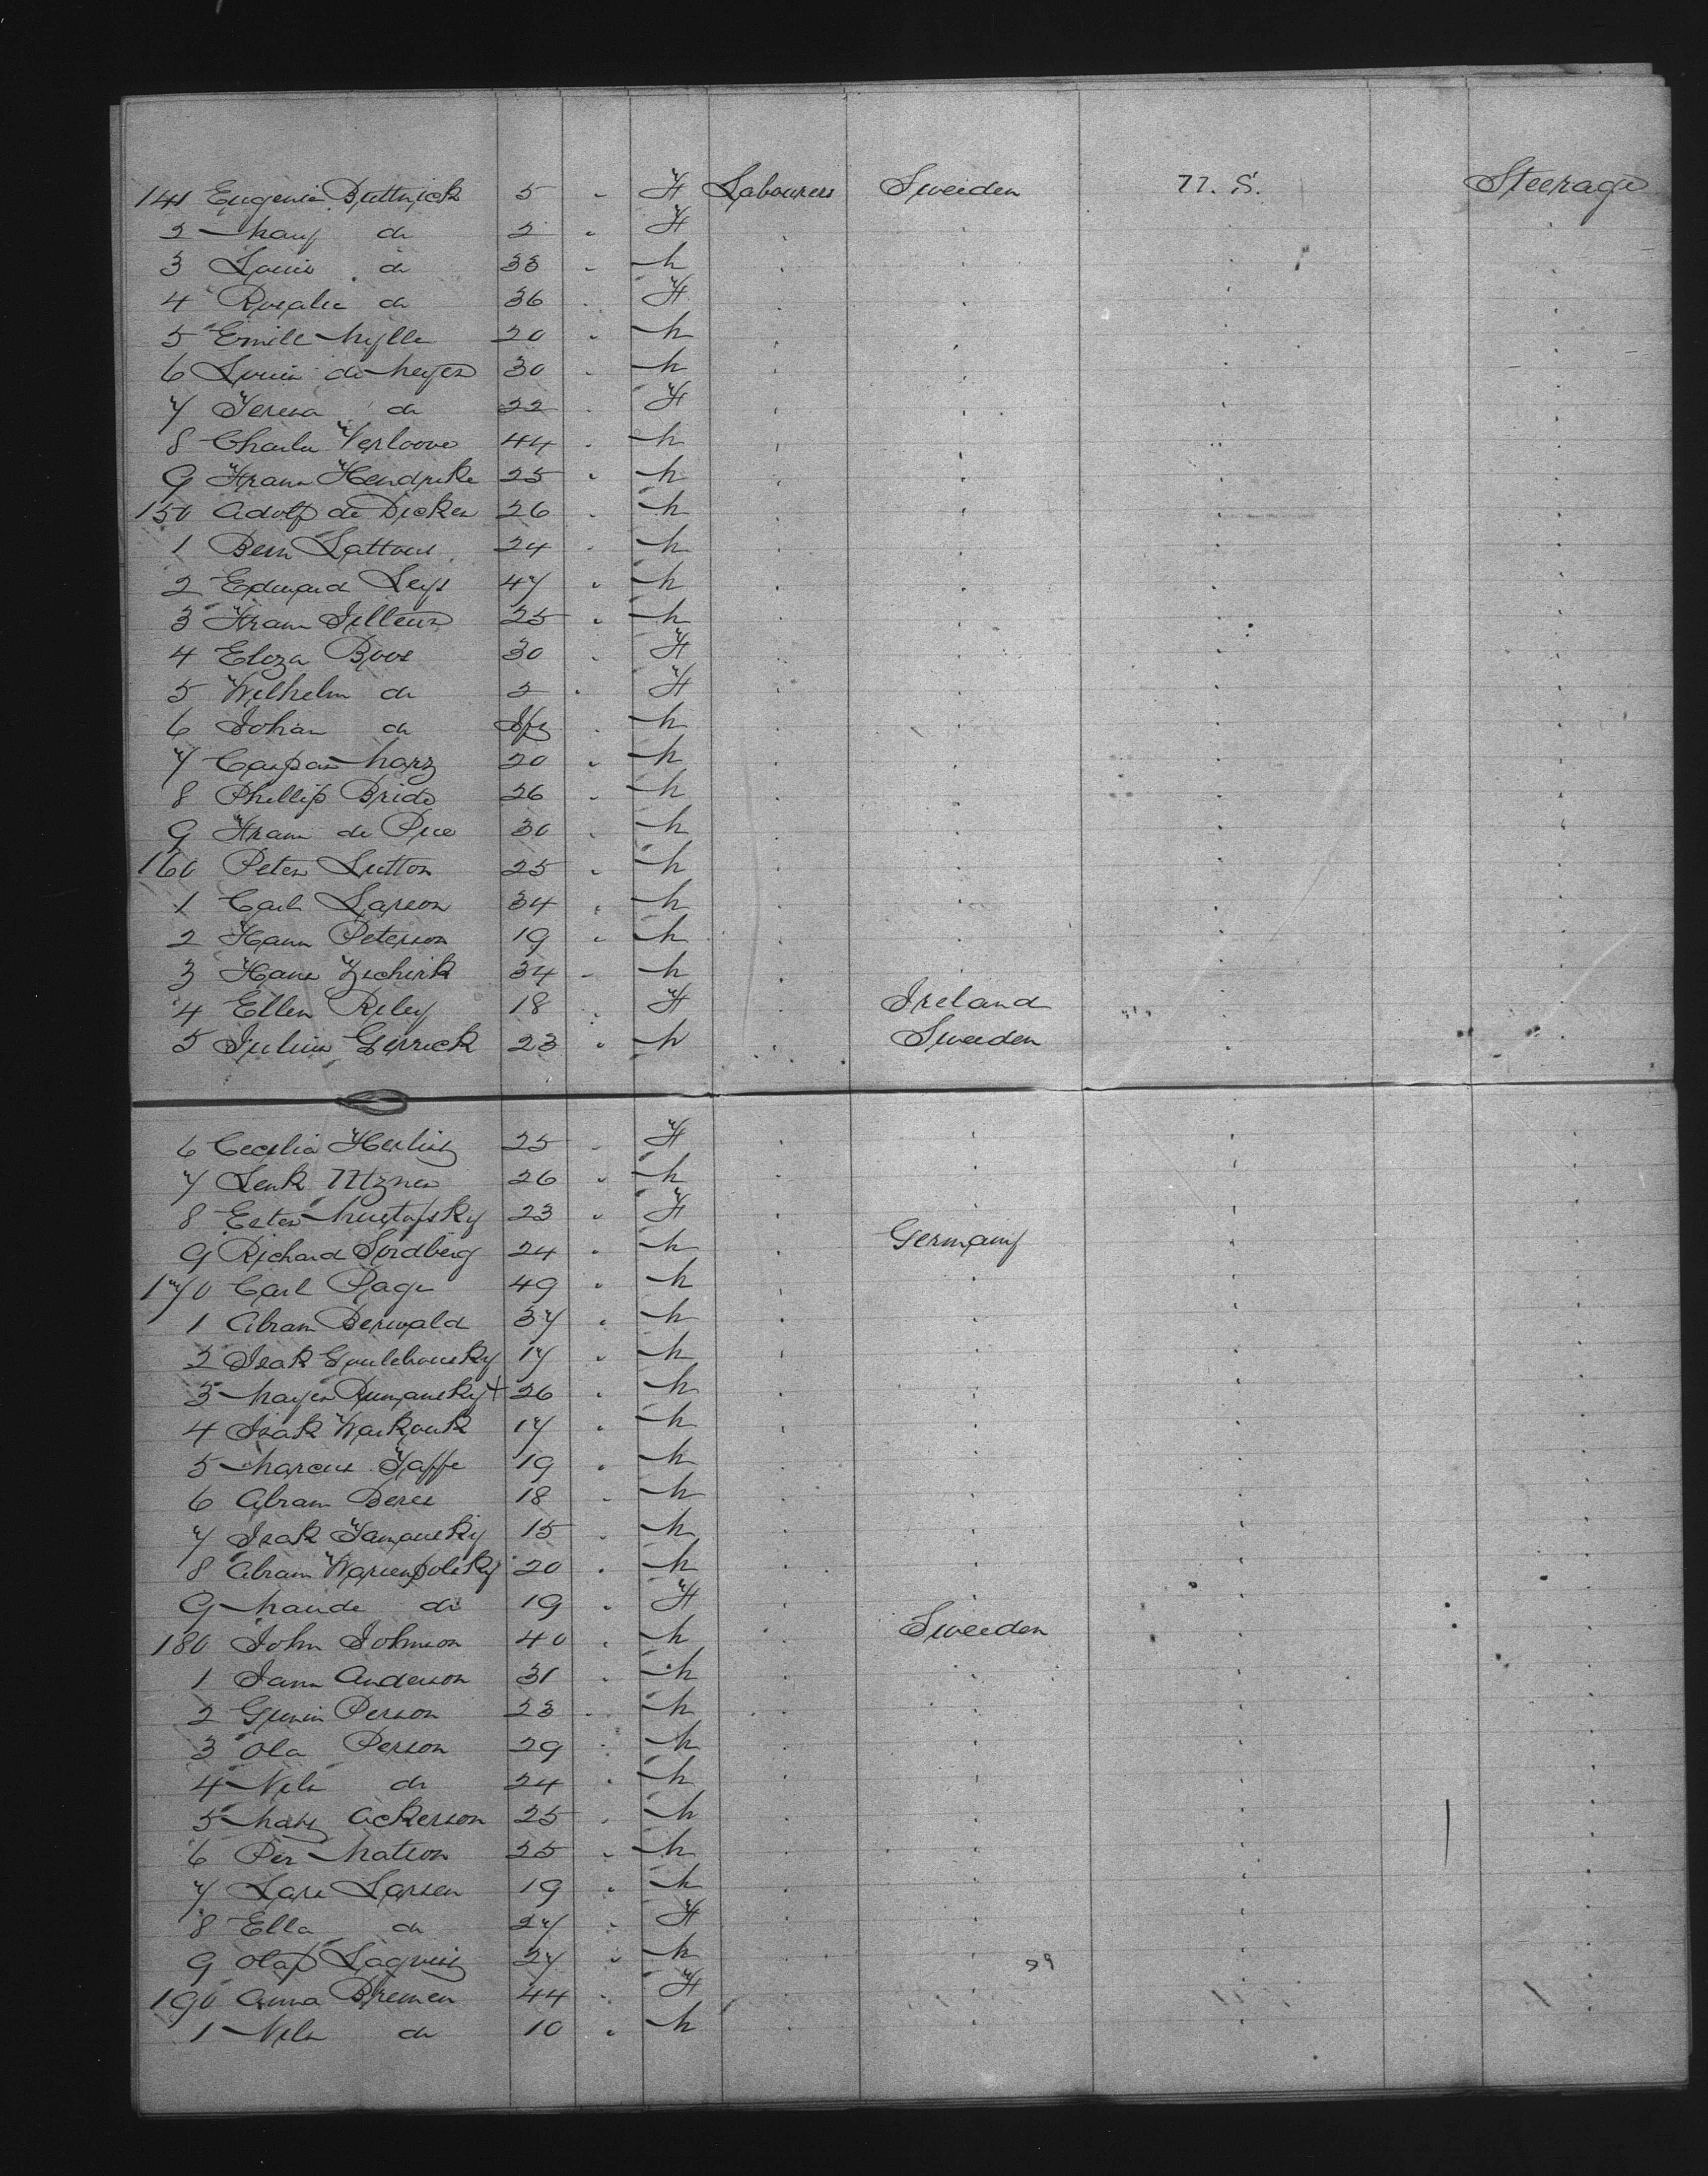 141 Eugenie Buttnick 5 " F Labourers Sweden U. S. Steerage
2 Mary do 2 " F
3 Louis do 33 " M
4 Rosalie do 36 " F
5 Emile Mylle 20 " M
6 Louis de Meyer 30 " M
7 Teresa do 22 " F
8 Charles Verloove 44 " M
9 Frans Hendrike 25 " M
150 Adolf de Dicker 26 " M
1 Bern Lattous 24 " M
2 Edward Leys 47 " M
3 Frans Tilleur 25 " M
4 Eliza Boos 30 " F
5 Wilhelm do 2 " F
6 Johan do Inf " M
7 Caspar Marz 20 " M
8 Phillip Brido 26 " M
9 Frans de Pree 30 " M
160 Peter Sutton 25 " M
1 Carl Larson 34 " M
2 Hann Peterson 19 " M
3 Hans 34 " M
4 Ellen Riley 18 " F Ireland
5 Julius Gerrick 23 " M Sweden
6 Cecelia 25 " F
7 26 " M
8 Ester 23 " F
9 Richard Nordberg 24 " M Germany
170 Carl Page 49 " M
1 Abram Berwald 37 " M
2 Isak 17 " M
3 Mayer Rumanesky + 26 " M
4 Isak 17 " M
5 Marcus Yaffe 19 " M
6 Abram Beres 18 " M
7 Isak 15 " M
8 Abram Warienpolsky 20 " M
9 Maude do 19 " F
180 John Johnson 40 " M Sweden
1 Jann Anderson 31 " M
2 Person 23 " M
3 Ola Person 29 " M
4 Nels do 24 " M
5 Mats Ackerson 25 " M
6 Per Matson 25 " M
7 Lars Larsen 19 " M
8 Ella do 27 " F
9 Olaf 27 " M
190 Anna Bremen 44 " F
1 Nels do 10 " M